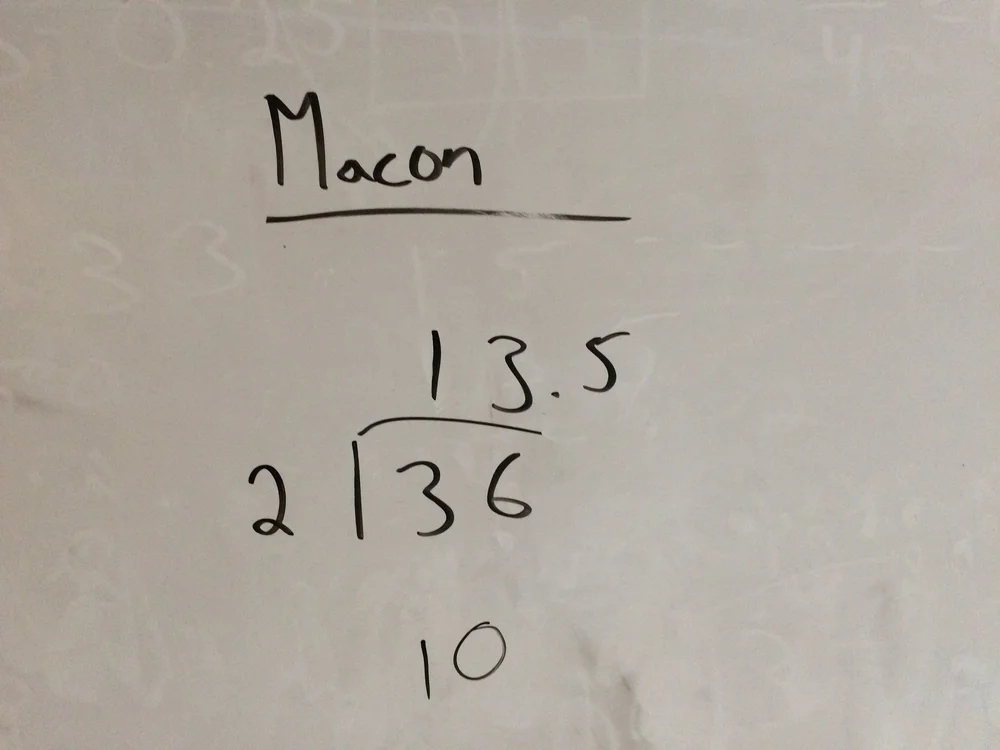 Macon
13.5
2 36
10